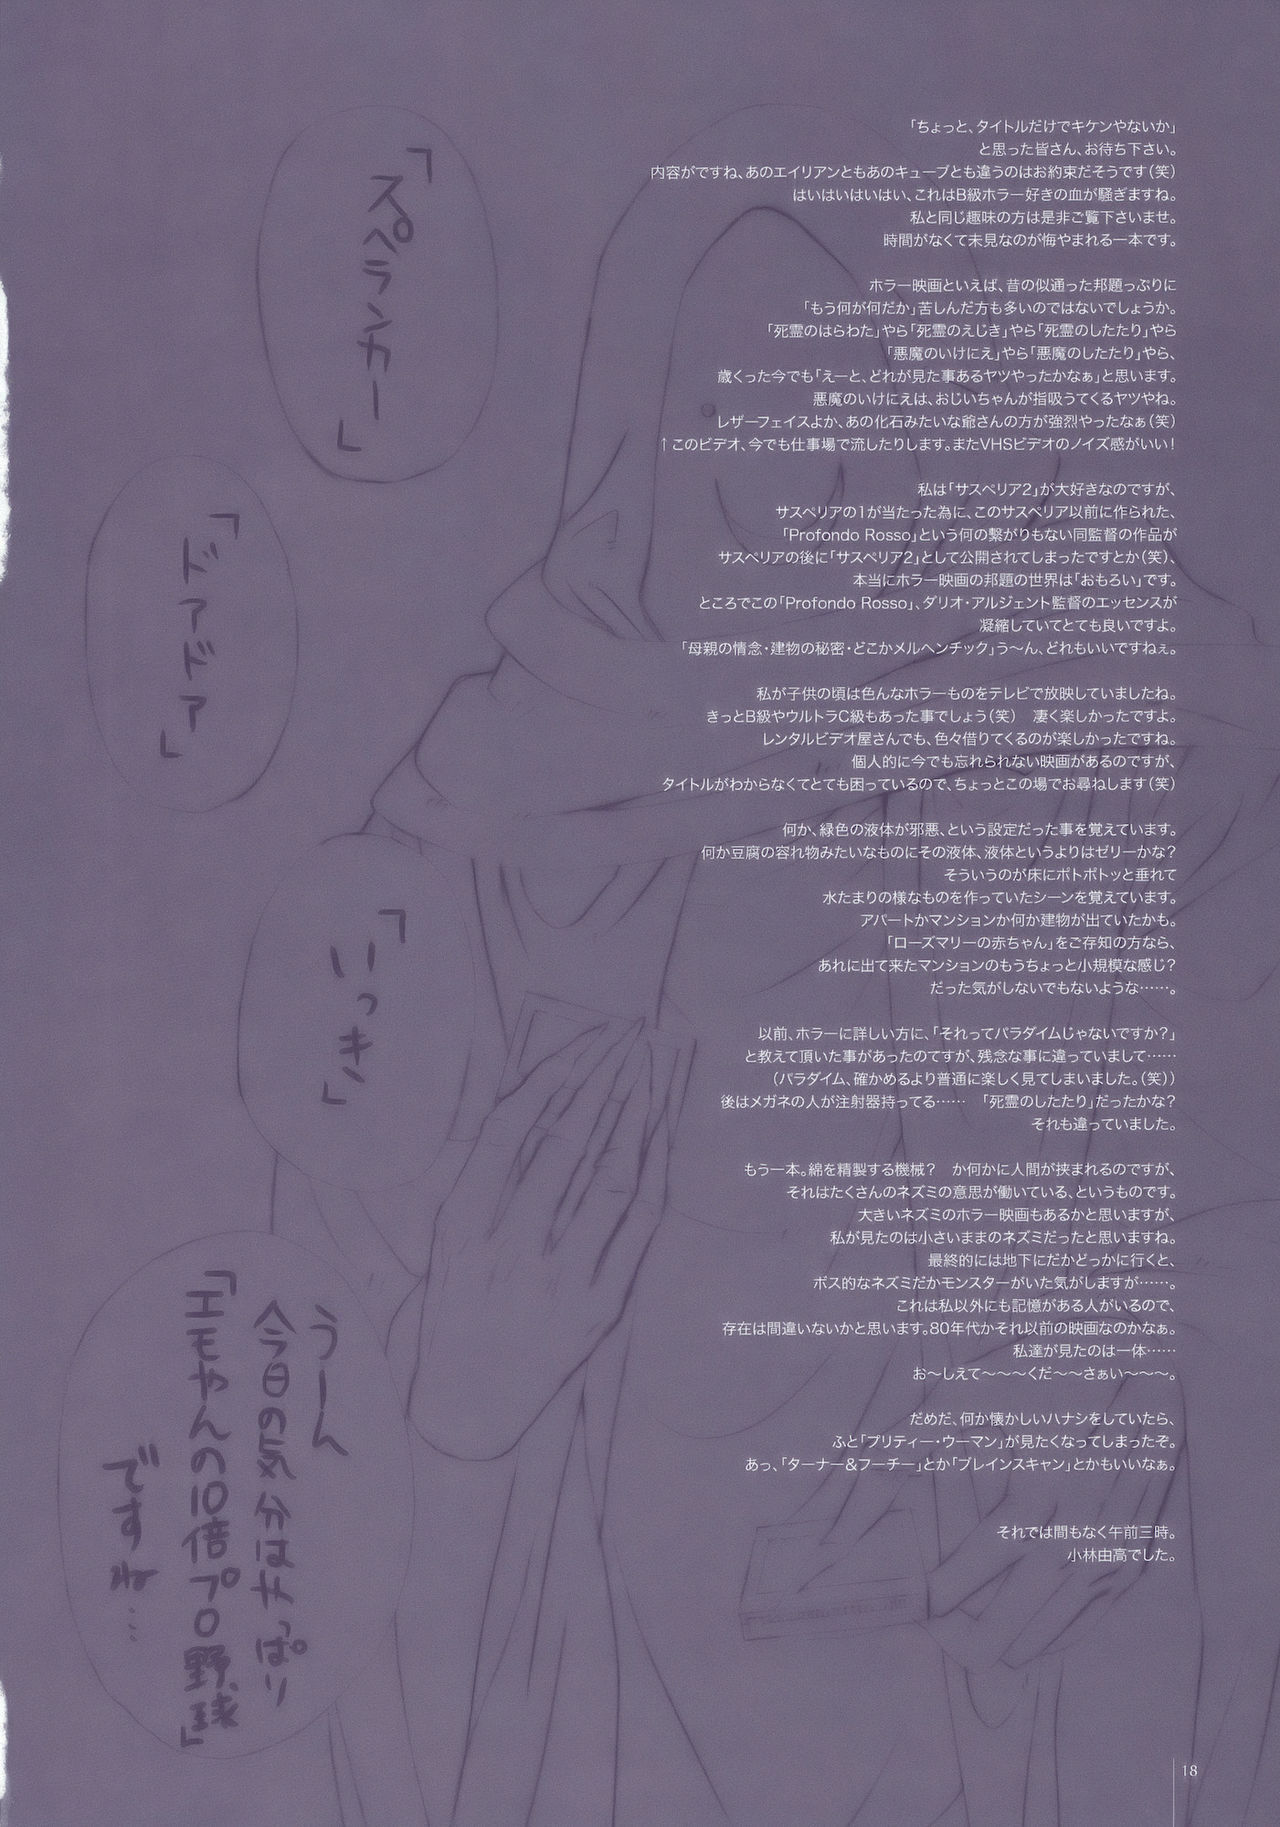 「ちょっと、タイトルだけでキケンやないか」
と思った皆さん、お待ち下さい。
内容がですね、あのエイリアンともあのキューブとも違うのはお約束だそうです(笑)
はいはいはいはい、これはB級ホラー好きの血が騒ぎますね。
私と同じ趣味の方は是非ご覧下さいませ。
時間がなくて未見なのが悔やまれる一本です。
ホラー映画といえば、昔の似通った邦題っぷりに
「もう何が何だか」苦しんだ方も多いのではないでしょうか。
「死霊のはらわた」やら「死霊のえじき」やら「死霊のしたたり」やら
「悪魔のいけにえ」やら「悪魔のしたたり」やら、
歳くった今でも「えーと、どれが見た事あるヤツやったかなぁ」と思います。
悪魔のいけにえは、おじいちゃんが指吸うてくるヤツやね。
レザーフェイスよか、あの化石みたいな爺さんの方が強烈やったなぁ(笑)
↑このビデオ、今でも仕事場で流したりします。またVHSビデオのノイズ感がいい!
私は「サスペリア2」が大好きなのですが、
サスペリアの1が当たった為に、このサスペリア以前に作られた、
「Profondo Rosso」という何の繋がりもない同監督の作品が
サスペリアの後に「サスペリア2」として公開されてしまったですとか(笑)、
本当にホラー映画の邦題の世界は「おもろい」です。
ところでこの「Profondo Rosso」、ダリオ・アルジェント監督のエッセンスが
凝縮していてとても良いですよ。
「母親の情念・建物の秘密・どこかメルヘンチック」う〜ん、どれもいいですねぇ。
私が子供の頃は色んなホラーものをテレビで放映していましたね。
きっとB級やウルトラC級もあった事でしょう(笑)　凄く楽しかったですよ。
レンタルビデオ屋さんでも、色々借りてくるのが楽しかったですね。
個人的に今でも忘れられない映画があるのですが、
タイトルがわからなくてとても困っているので、ちょっとこの場でお尋ねします(笑)
何か、緑色の液体が邪悪、という設定だった事を覚えています。
何か豆腐の容れ物みたいなものにその液体、液体というよりはゼリーかな?
そういうのが床にポトポトッと垂れて
水たまりの様なものを作っていたシーンを覚えています。
アパートかマンションか何か建物が出ていたかも。
「ローズマリーの赤ちゃん」をご存知の方なら、
あれに出て来たマンションのもうちょっと小規模な感じ?
だった気がしないでもないような……。
以前、ホラーに詳しい方に、「それってパラダイムじゃないですか?」
と教えて頂いた事があったのですが、残念な事に違っていまして……
(パラダイム、確かめるより普通に楽しく見てしまいました。(笑))
後はメガネの人が注射器持ってる……　「死霊のしたたり」だったかな?
それも違っていました。
もう一本。綿を精製する機械?　か何かに人間が挟まれるのですが、
それはたくさんのネズミの意思が働いている、というものです。
大きいネズミのホラー映画もあるかと思いますが、
私が見たのは小さいままのネズミだったと思いますね。
最終的には地下にだかどっかに行くと、
ボス的なネズミだかモンスターがいた気がしますが……。
これは私以外にも記憶がある人がいるので、
存在は間違いないかと思います。80年代かそれ以前の映画なのかなぁ。
私達が見たのは一体……
お〜しえて〜〜〜くだ〜〜さぁい〜〜〜。
だめだ、何か懐かしいハナシをしていたら、
ふと「プリティー・ウーマン」が見たくなってしまったぞ。
あっ、「ターナー&フーチー」とか「ブレインスキャン」とかもいいなぁ。
それでは間もなく午前三時。
小林由高でした。
「スペランカー」
「ドアドア」
「いっき」
うーん
今日の気分はやっぱり
「エモやんの10倍プロ野球」
ですね…
18